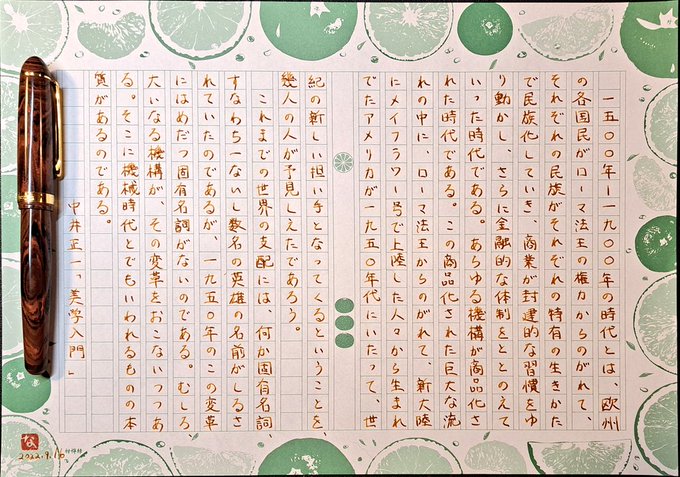 一五〇〇年ー一九〇〇年の時代とは、欧州
の各国民がローマ法王の権力からのがれて、
それぞれの民族がそれぞれの特有の生きかた
で民族化していき、商業が封建的な習慣をゆ
り動かし、さらに金融的な体制をととのえて
いった時代である。あらゆる機構が商品化さ
れた時代である。この商品化された巨大な流
れの中に、ローマ法王からのがれて、新大陸
にメイフラワー号で上陸した人々から生まれ
でたアメリカが一九五〇年代にいたって、世
紀の新しい担い手となってくるということを、
幾人の人が予見しえたであろう。
これまでの世界の支配には、何か固有名詞
すなわち一ないし数名の英雄の名前がしるさ
れていたのであるが、一九五〇年のこの変革
にはめだつ固有名詞がないのである。むしろ
大いなる機構が、その変革をおこないつつあ
る。そこに機械時代とでもいわれるものの本
質があるのである。
中井正一「美学入門」
な
2022.9.10